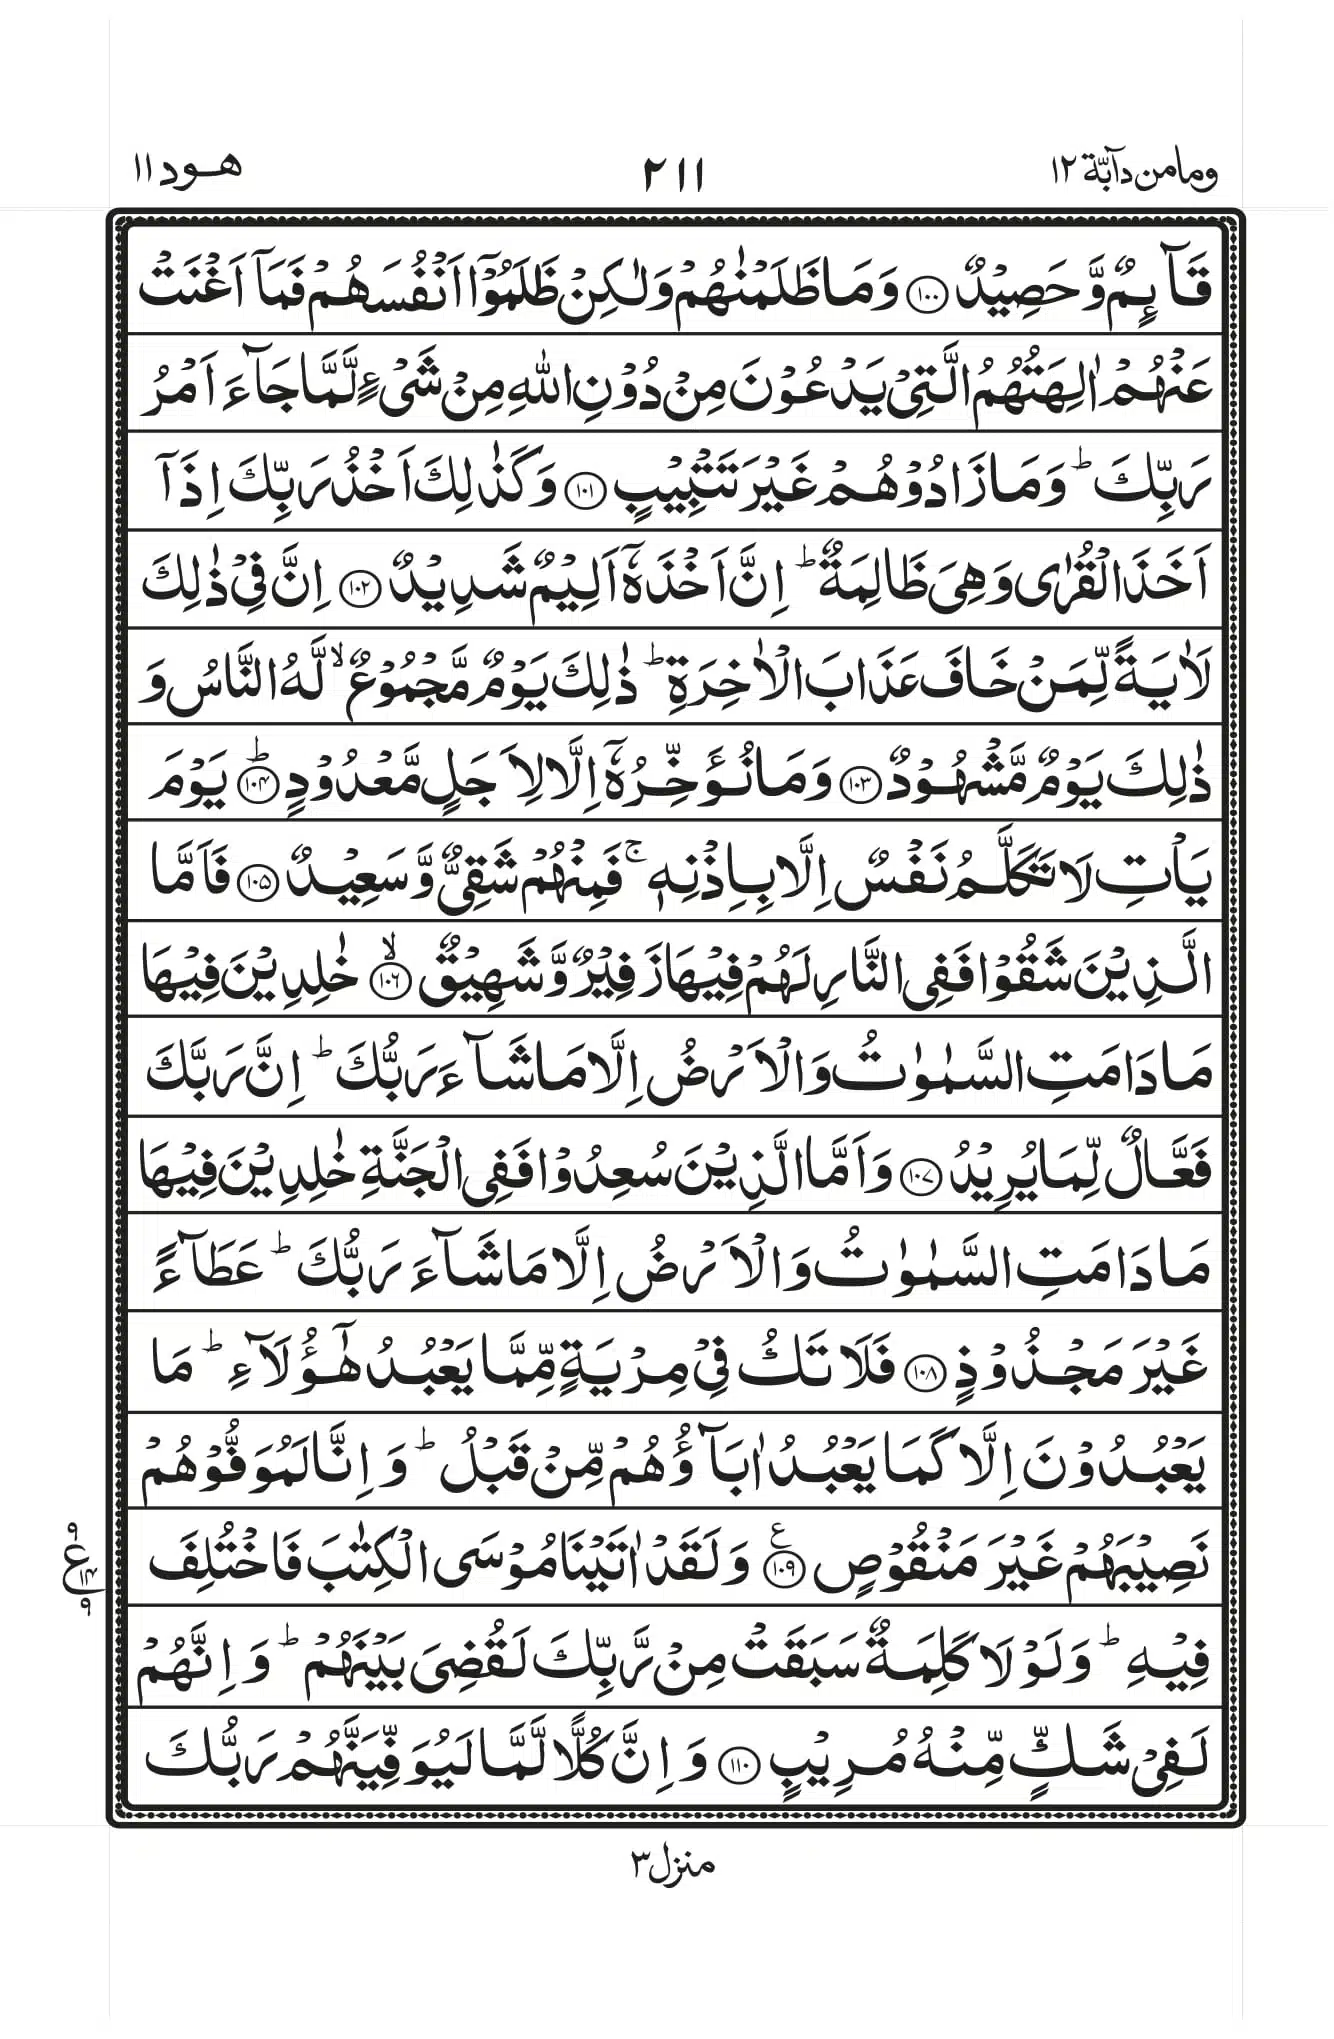 ومامن دآبّة ١٢
٢١١
هود ١١
قَآئِمٌ وَّحَصِيْدٌ ﴿١٠٠﴾ وَمَا ظَلَمْنٰهُمْ وَلٰكِنْ ظَلَمُوْۤا اَنْفُسَهُمْ فَمَاۤ اَغْنَتْ
عَنْهُمْ اٰلِهَتُهُمُ الَّتِىْ يَدْعُوْنَ مِنْ دُوْنِ اللّٰهِ مِنْ شَىْءٍ لَّمَّا جَآءَ اَمْرُ
رَبِّكَ ؕ وَمَا زَادُوْهُمْ غَيْرَ تَتْبِيْبٍ ﴿١٠١﴾ وَكَذٰلِكَ اَخْذُ رَبِّكَ اِذَاۤ
اَخَذَ الْقُرٰى وَهِىَ ظَالِمَةٌ ؕ اِنَّ اَخْذَهٗۤ اَلِيْمٌ شَدِيْدٌ ﴿١٠٢﴾ اِنَّ فِىْ ذٰلِكَ
لَاٰيَةً لِّمَنْ خَافَ عَذَابَ الْاٰخِرَةِ ؕ ذٰلِكَ يَوْمٌ مَّجْمُوْعٌ ۙ لَّهُ النَّاسُ وَ
ذٰلِكَ يَوْمٌ مَّشْهُوْدٌ ﴿١٠٣﴾ وَمَا نُؤَخِّرُهٗۤ اِلَّا لِاَجَلٍ مَّعْدُوْدٍ ؕ﴿١٠٤﴾ يَوْمَ
يَاْتِ لَا تَكَلَّمُ نَفْسٌ اِلَّا بِاِذْنِهٖ ۚ فَمِنْهُمْ شَقِىٌّ وَّسَعِيْدٌ ﴿١٠٥﴾ فَاَمَّا
الَّذِيْنَ شَقُوْا فَفِى النَّارِ لَهُمْ فِيْهَا زَفِيْرٌ وَّشَهِيْقٌ ۙ﴿١٠٦﴾ خٰلِدِيْنَ فِيْهَا
مَا دَامَتِ السَّمٰوٰتُ وَالْاَرْضُ اِلَّا مَا شَآءَ رَبُّكَ ؕ اِنَّ رَبَّكَ
فَعَّالٌ لِّمَا يُرِيْدُ ﴿١٠٧﴾ وَاَمَّا الَّذِيْنَ سُعِدُوْا فَفِى الْجَنَّةِ خٰلِدِيْنَ فِيْهَا
مَا دَامَتِ السَّمٰوٰتُ وَالْاَرْضُ اِلَّا مَا شَآءَ رَبُّكَ ؕ عَطَآءً
غَيْرَ مَجْذُوْذٍ ﴿١٠٨﴾ فَلَا تَكُ فِىْ مِرْيَةٍ مِّمَّا يَعْبُدُ هٰۤؤُلَآءِ ؕ مَا
يَعْبُدُوْنَ اِلَّا كَمَا يَعْبُدُ اٰبَآؤُهُمْ مِّنْ قَبْلُ ؕ وَاِنَّا لَمُوَفُّوْهُمْ
نَصِيْبَهُمْ غَيْرَ مَنْقُوْصٍ ﴿١٠٩﴾ع وَلَقَدْ اٰتَيْنَا مُوْسَى الْكِتٰبَ فَاخْتُلِفَ
٩ ع ١٤ ٩
فِيْهِ ؕ وَلَوْلَا كَلِمَةٌ سَبَقَتْ مِنْ رَّبِّكَ لَقُضِىَ بَيْنَهُمْ ؕ وَاِنَّهُمْ
لَفِىْ شَكٍّ مِّنْهُ مُرِيْبٍ ﴿١١٠﴾ وَاِنَّ كُلًّا لَّمَّا لَيُوَفِّيَنَّهُمْ رَبُّكَ
منزل ٣